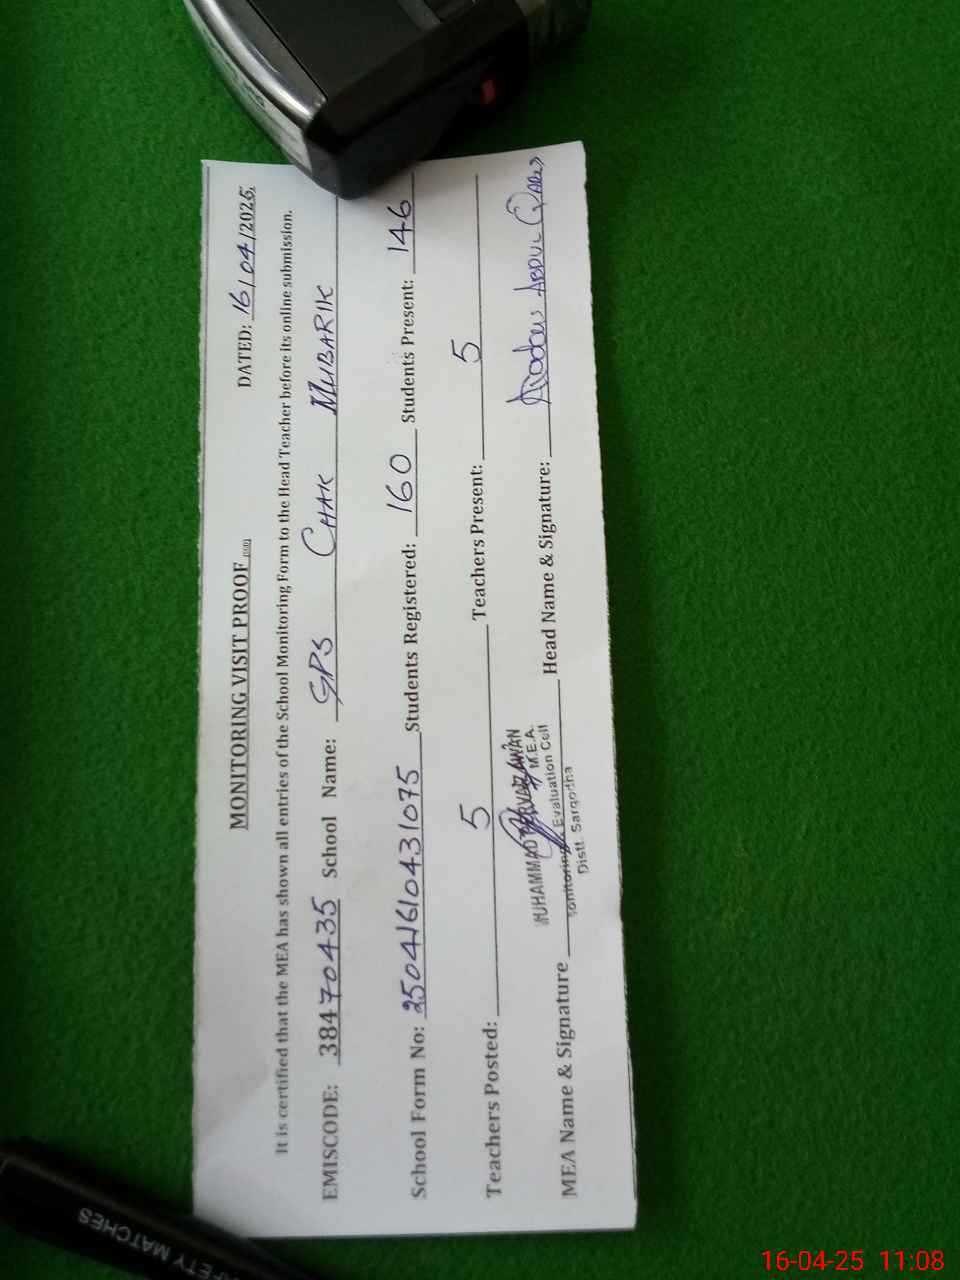 MONITORING VISIT PROOF
DATED: 16/04/2025.
It is certified that the MEA has shown all entries of the School Monitoring Form to the Head Teacher before its online submission.
EMISCODE: 38470435 School Name: GPS CHAK MUBARIK
School Form No: 25041610431075 Students Registered: 160 Students Present: 146
Teachers Posted: 5 Teachers Present: 5
MUHAMMAD PERVAIZ AWAN
M.E.A.
Monitoring & Evaluation Cell
Distt. Sargodha
MEA Name & Signature Head Name & Signature: ABDUL
SAFETY MATCHES
16-04-25 11:08